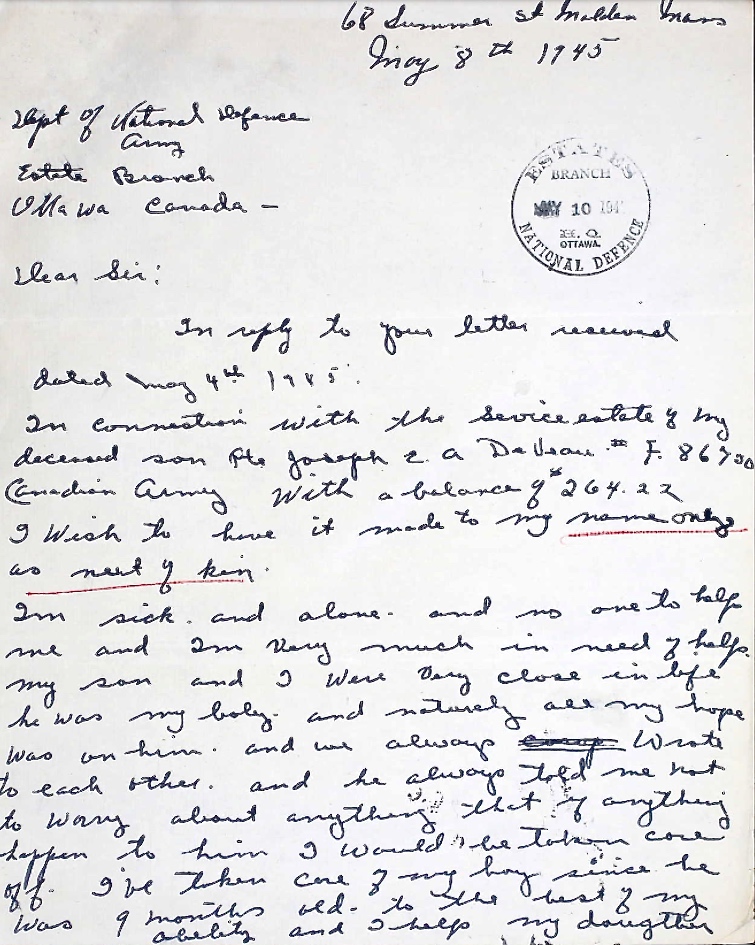 68 Summer st Malden Mass
May 8th 1945
Dept of National Defence
Army
Estate Branch
Ottawa Canada -
ESTATES
BRANCH
MAY 10 194
H. Q.
OTTAWA.
NATIONAL DEFENCE
Dear Sir:
In reply to your letter received
dated May 4th 1945.
In connection with the Sevice estate of my
deceased son Pte Joseph E. A DeVeau # F. 86730
Canadian Army With a balance of $264.22
I Wish to have it made to my name only
as next of kin.
I'm sick. and alone. and no one to help
me and I'm Very much in need of help.
my son and I Were Very close in life
he was my baby. and naturely all my hope
was on him. and we always Wrote
to each other. and he always told me not
to worry about anything that if anything
happen to him I would be taken care
off. I've taken care of my boy since he
was 9 months old. to the best of my
ability and I help my daugther